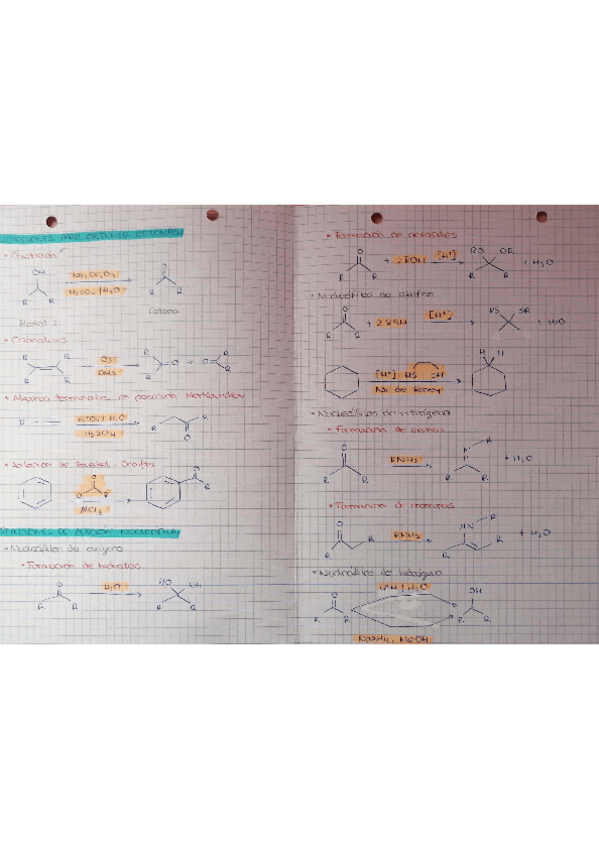 REACCIONES PARA OBTENER CETONAS
• Oxidación
OH
O
Na2Cr2O7
H2SO4/H2O
R R
R R
Alcohol 2
Cetona
• Ozonólisis
R R
R R
O3
DMS
R
R
O + O
R
R
• Alquinos terminales, en posición Markovnikov
R
H2SO4/H2O
HgSO4
R
O
• Acilación de Friedel-Crafts
O
R
AlCl3
O
R
REACCIONES DE ADICIÓN NUCLEOFÍLICA
• Nucleófilos de oxígeno
• Formación de hidratos
O
R R
H2O
HO OH
R R
• Formación de acetales
O
R R
+ 2 ROH
[H+]
RO OR
R R
+ H2O
• Nucleófilos de azufre
O
R R
+ 2 RSH
[H+]
RS SR
+ H2O
[H+] HS SH
Ni de Raney
H H
• Nucleófilos de nitrógeno
• Formación de iminas
O
R R
RNH2
N R
R R
+ H2O
• Formación de enaminas
O
R R
HN R
R R
+ H2O
• Nucleófilos de hidrógeno
O
R R
OH
R R
NaBH4, MeOH